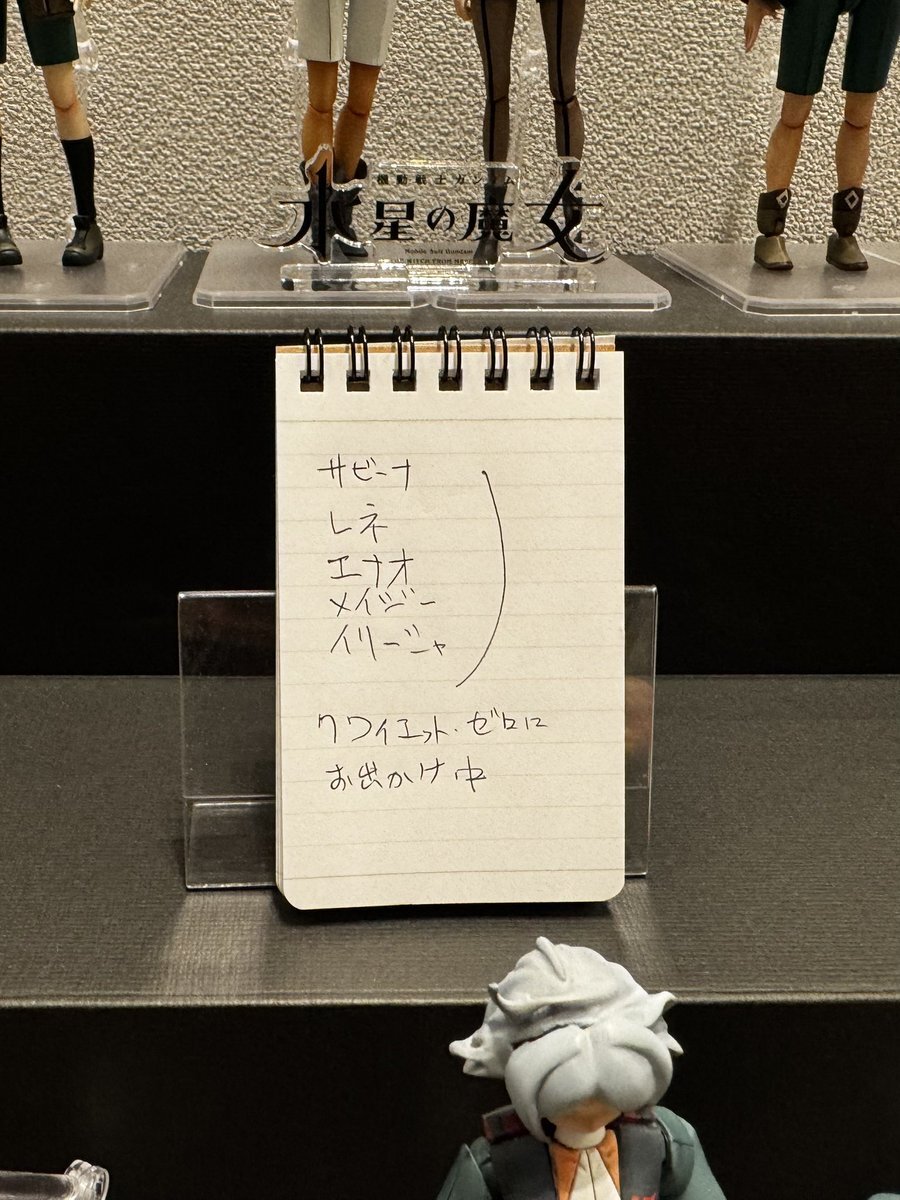 機動戦士ガンダム
水星の魔女
Mobile Suit Gundam
サビーナ
レネ
エナオ
メイジー
イリーシャ
クワイエット・ゼロに
お出かけ中